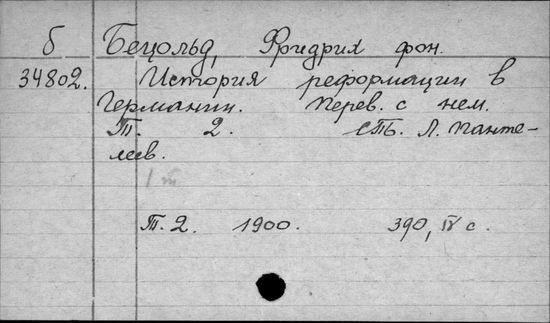 б Бецольд, Фридрих фон.
34802. История реформации в
Германии. Перев. с нем.
Т. 2. СПб. Л. Панте-
леев.
1 т
Т. 2. 1900. 390, IV с.